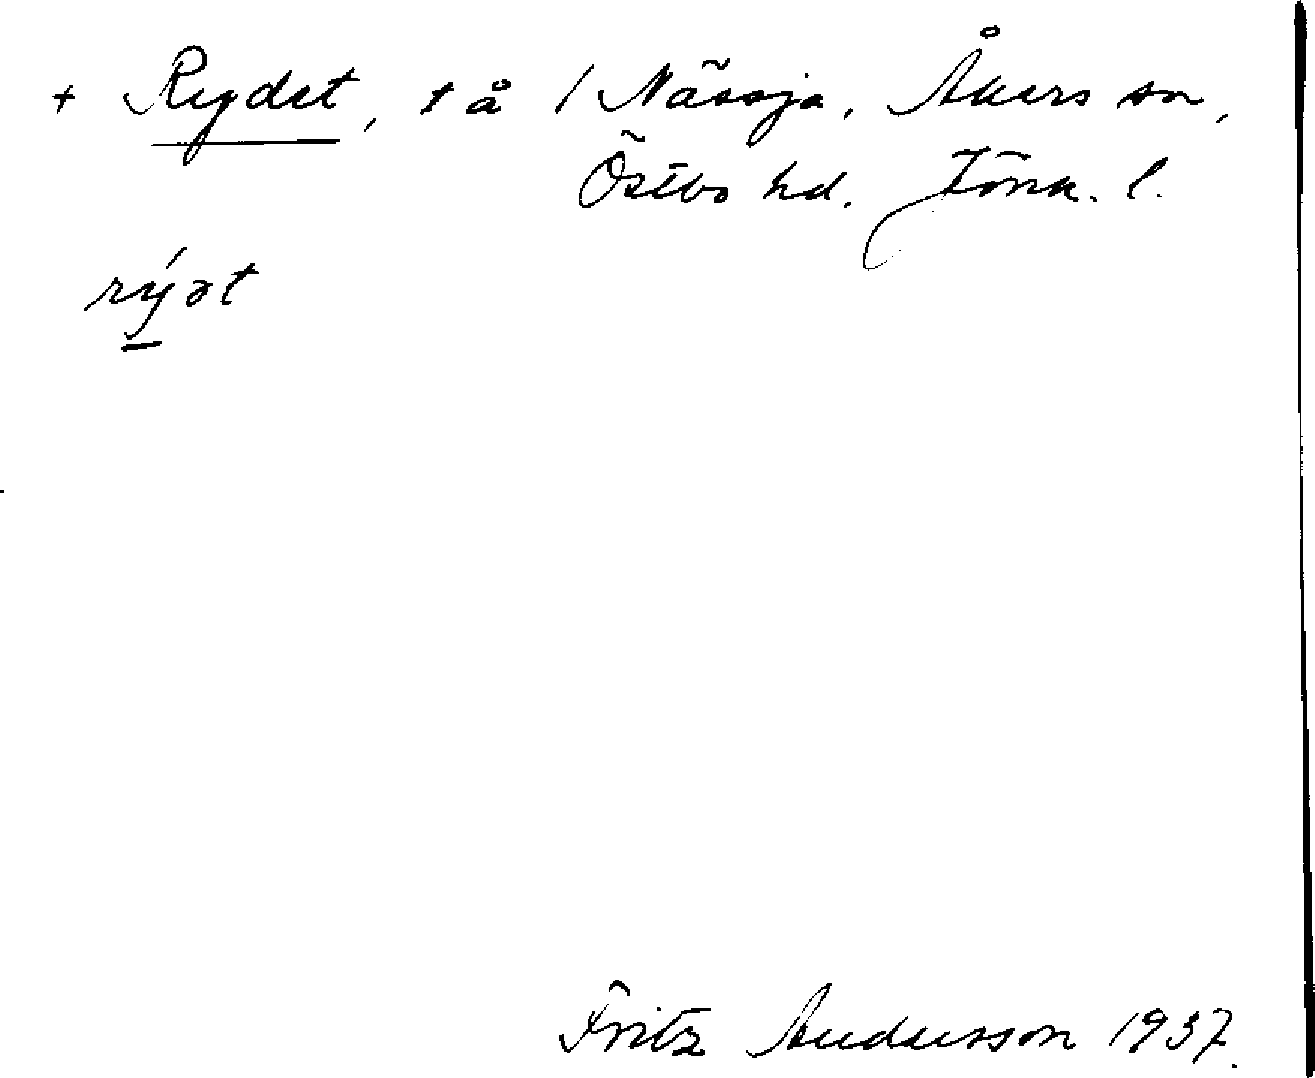 + Rydet, t å / Nässja, Åkers sn,
Östbo hd. Jönk. l.
rýət
Fritz Andersson 1937.